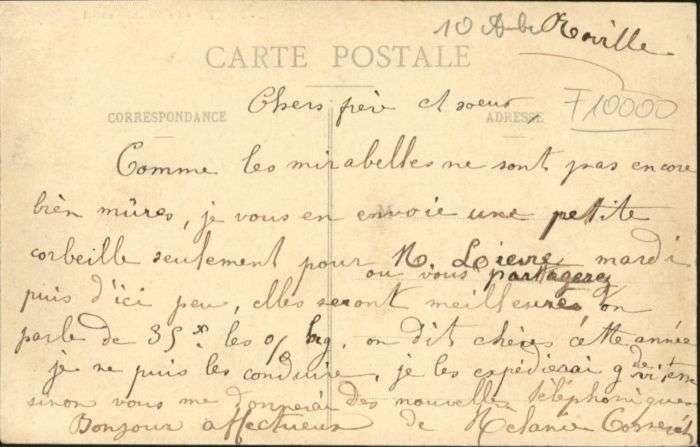 Roville
CARTE POSTALE
F10000
Chers frère et soeur
CORRESPONDANCE
ADRESSE
Comme les mirabelles ne sont pas encore
bien mûres, je vous en envoie une petite
corbeille seulement pour mardi
ou vous partagerez
puis d'ici peu, elles seront meilleures on
parle de 35 les % kg, on dit chères cette année
je ne puis les conduire, je les expédierai
sinon vous me des nouvelles téléphoniques
Bonjour affectueux de Mélanie